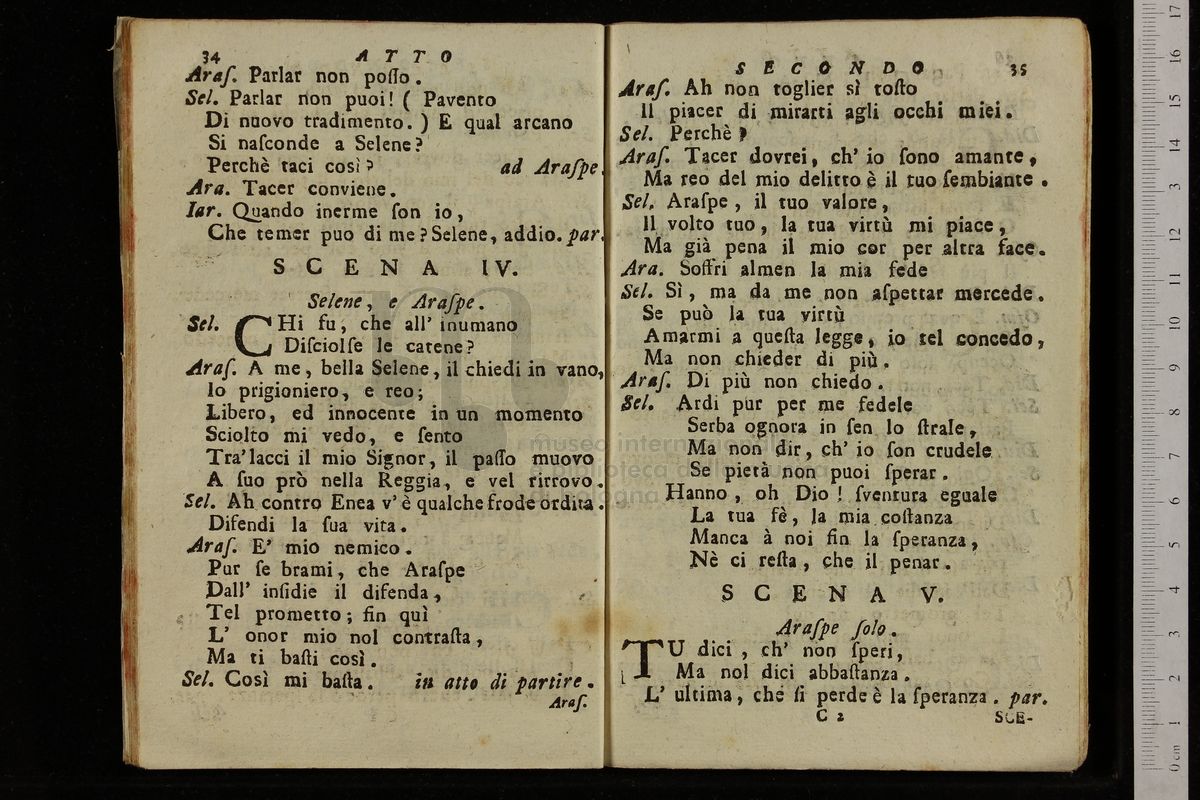 34 ATTO
Araſ. Parlar non poſſo.
Sel. Parlar non puoi! ( Pavento
Di nuovo tradimento. ) E qual arcano
Si naſconde a Selene?
Perchè taci così? ad Araſpe.
Ara. Tacer conviene.
Iar. Quando inerme ſon io,
Che temer puo di me? Selene, addio. par.
SCENA IV.
Selene, e Araſpe.
Sel. CHi fu, che all' inumano
Diſciolſe le catene?
Araſ. A me, bella Selene, il chiedi in vano,
Io prigioniero, e reo;
Libero, ed innocente in un momento
Sciolto mi vedo, e ſento
Tra' lacci il mio Signor, il paſſo muovo
A ſuo prò nella Reggia, e vel ritrovo.
Sel. Ah contro Enea v' è qualche frode ordita.
Difendi la ſua vita.
Araſ. E' mio nemico.
Pur ſe brami, che Araſpe
Dall' inſidie il difenda,
Tel prometto; fin quì
L' onor mio nol contraſta,
Ma ti baſti così.
Sel. Così mi baſta. in atto di partire.
Araſ.
SECONDO 35
Araſ. Ah non toglier sì toſto
Il piacer di mirarti agli occhi miei.
Sel. Perchè?
Araſ. Tacer dovrei, ch' io ſono amante,
Ma reo del mio delitto è il tuo ſembiante.
Sel. Araſpe, il tuo valore,
Il volto tuo, la tua virtù mi piace,
Ma già pena il mio cor per altra face.
Ara. Soffri almen la mia fede
Sel. Sì, ma da me non aſpettar mercede.
Se può la tua virtù
Amarmi a queſta legge, io tel concedo,
Ma non chieder di più.
Araſ. Di più non chiedo.
Sel. Ardi pur per me fedele
Serba ognora in ſen lo ſtrale,
Ma non dir, ch' io ſon crudele
Se pietà non puoi ſperar.
Hanno, oh Dio! ſventura eguale
La tua fè, la mia coſtanza
Manca à noi fin la ſperanza,
Nè ci reſta, che il penar.
SCENA V.
Araſpe ſolo.
TU dici, ch' non ſperi,
Ma nol dici abbaſtanza.
L' ultima, che ſi perde è la ſperanza. par.
C 2 SCE-
museo internazionale
e biblioteca della musica
di bologna
0 cm 1 2 3 4 5 6 7 8 9 10 11 12 13 14 15 16 17